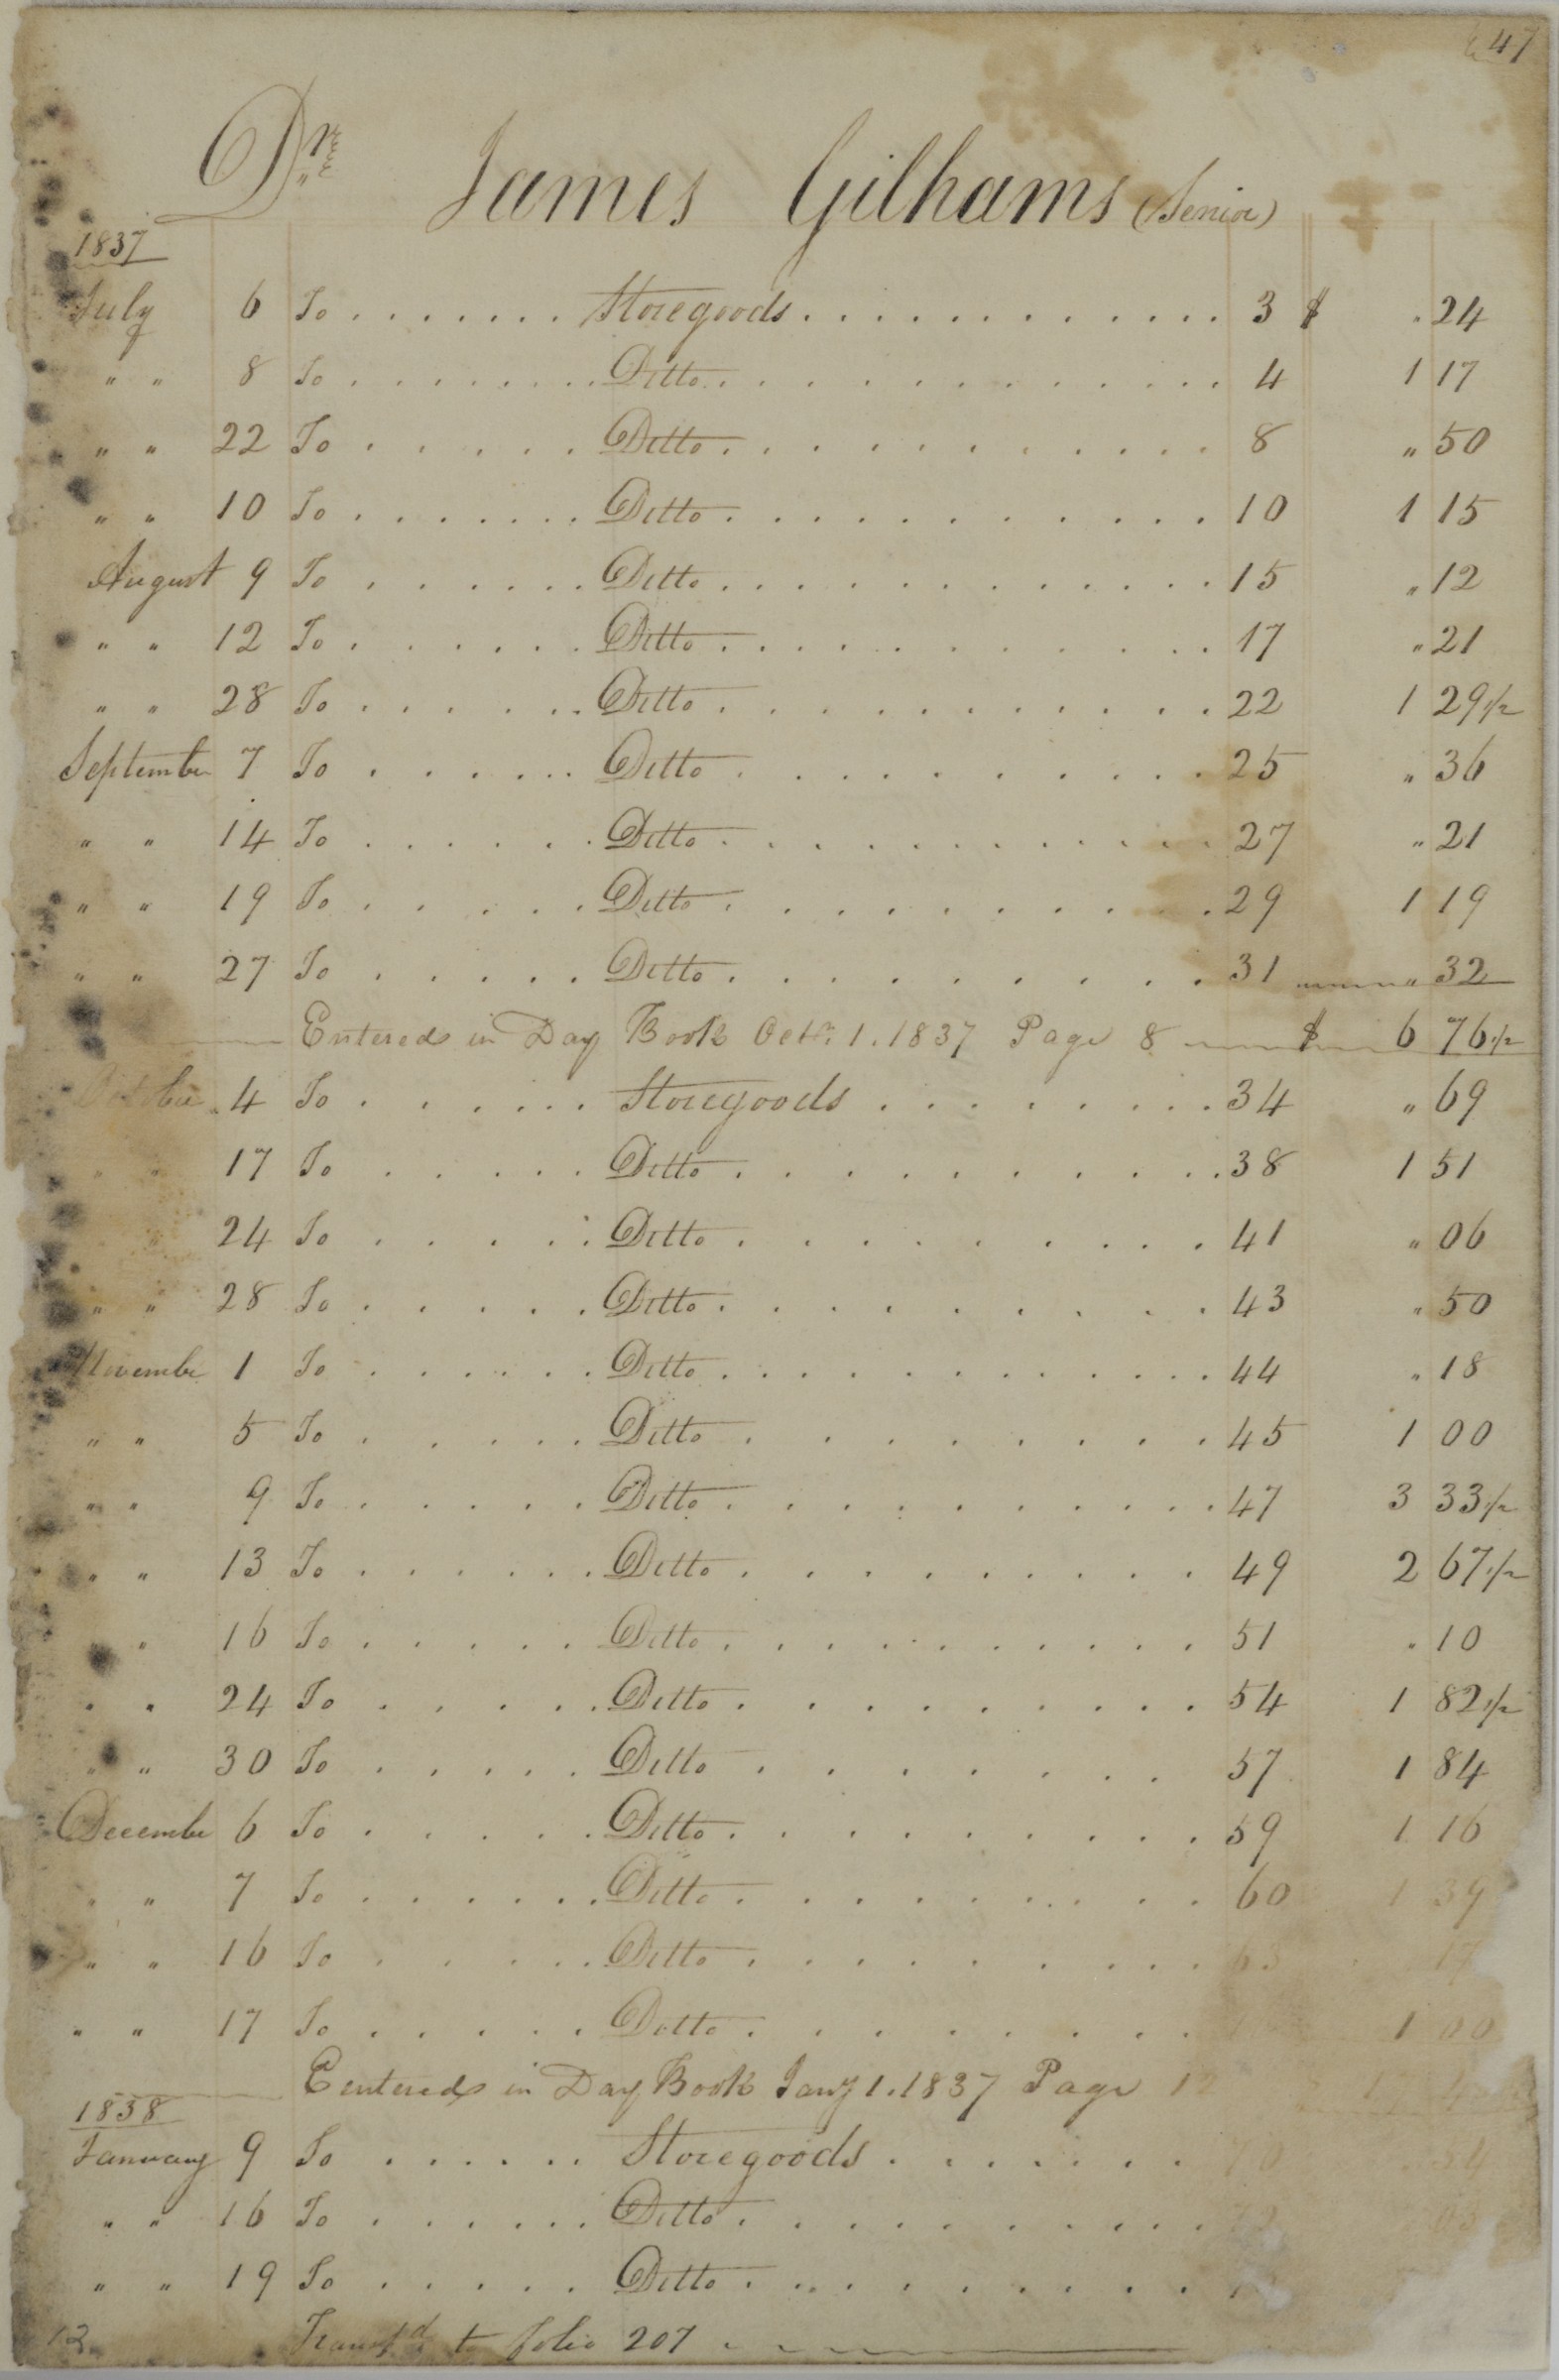 47
Dr
James Gilhams (Senior)
1837
July 6 To . . . . . . . Storegoods . . . . . . . . . . . . 3 $ " 24
" " 8 To . . . . . . . . Ditto . . . . . . . . . . . . 4 1 17
" " 22 To . . . . . Ditto . . . . . . . . . . . 8 " 50
" " 10 To . . . . . . . Ditto . . . . . . . . . . . 10 1 15
August 9 To . . . . . . Ditto . . . . . . . . . . . . . 15 " 12
" " 12 To . . . . . . Ditto . . . . . . . . . . . . 17 " 21
" " 28 To . . . . . . Ditto . . . . . . . . . . . . 22 1 29 1/2
September 7 To . . . . . . Ditto . . . . . . . . . . 25 " 36
" " 14 To . . . . . . Ditto . . . . . . . . . . . . 27 " 21
" " 19 To . . . . . Ditto . . . . . . . . . . . 29 1 19
" " 27 To . . . . . Ditto . . . . . . . . . . 31 " 32
Entered in Day Book Octr. 1. 1837 Page 8 $ 6 76 1/2
October 4 To . . . . . . Storegoods . . . . . . . . 34 " 69
" " 17 To . . . . . Ditto . . . . . . . . . . . 38 1 51
" 24 To . . . . . Ditto . . . . . . . . . . 41 " 06
" " 28 To . . . . . Ditto . . . . . . . . . . 43 " 50
November 1 To . . . . . . Ditto . . . . . . . . . . . . . 44 " 18
" " 5 To . . . . . Ditto . . . . . . . . . 45 1 00
" " 9 To . . . . . Ditto . . . . . . . . . . . 47 3 33 1/2
" " 13 To . . . . . . Ditto . . . . . . . . . 49 2 67 1/2
" " 16 To . . . . . Ditto . . . . . . . . . . 51 " 10
" " 24 To . . . . . Ditto . . . . . . . . . 54 1 82 1/2
" " 30 To . . . . . Ditto . . . . . . . . 57 1 84
December 6 To . . . . . Ditto . . . . . . . . . . 59 1 16
" " 7 To . . . . . . Ditto . . . . . . . . . . 60 1 39
" " 16 To . . . . . Ditto . . . . . . . . . . 63 17
" " 17 To . . . . . Ditto . . . . . . . . . 1 00
Eentered in Day Book Jany 1. 1837 Page 12
1838
January 9 To . . . . . . Storegoods . . . . . . . 70
" " 16 To . . . . . . Ditto . . . . . . . . . .
" " 19 To . . . . . Ditto . . . . . . . . .
12 Transfd to folio 207